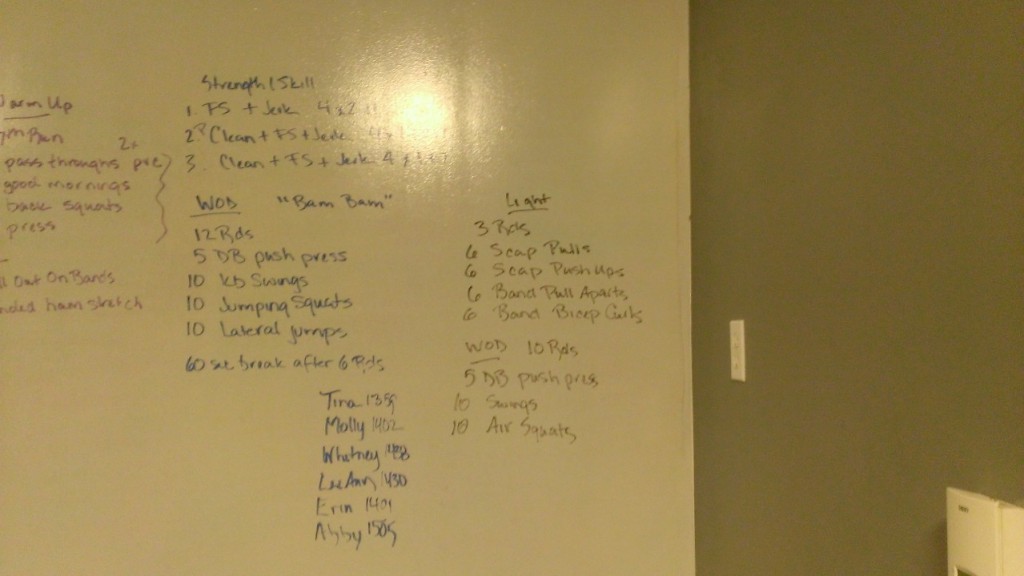 Warm Up
Gym Run
2x
pass throughs pvc
good mornings
back squats
press
Out On Bands
ham stretch
Strength / Skill
1. FS + Jerk 4x2
2. Clean + FS + Jerk
3. Clean + FS + Jerk 4x
WOD "Bam Bam"
12 Rds
5 DB push press
10 KB Swings
10 Jumping Squats
10 Lateral jumps
60 sec break after 6 Rds
Tina 1359
Molly 1402
Whitney
LeeAnn 1430
Erin 1401
Abby 1505
Light
3 Rds
6 Scap Pulls
6 Scap Push Ups
6 Band Pull Aparts
6 Band Bicep Curls
WOD 10 Rds
5 DB push press
10 Swings
10 Air Squats